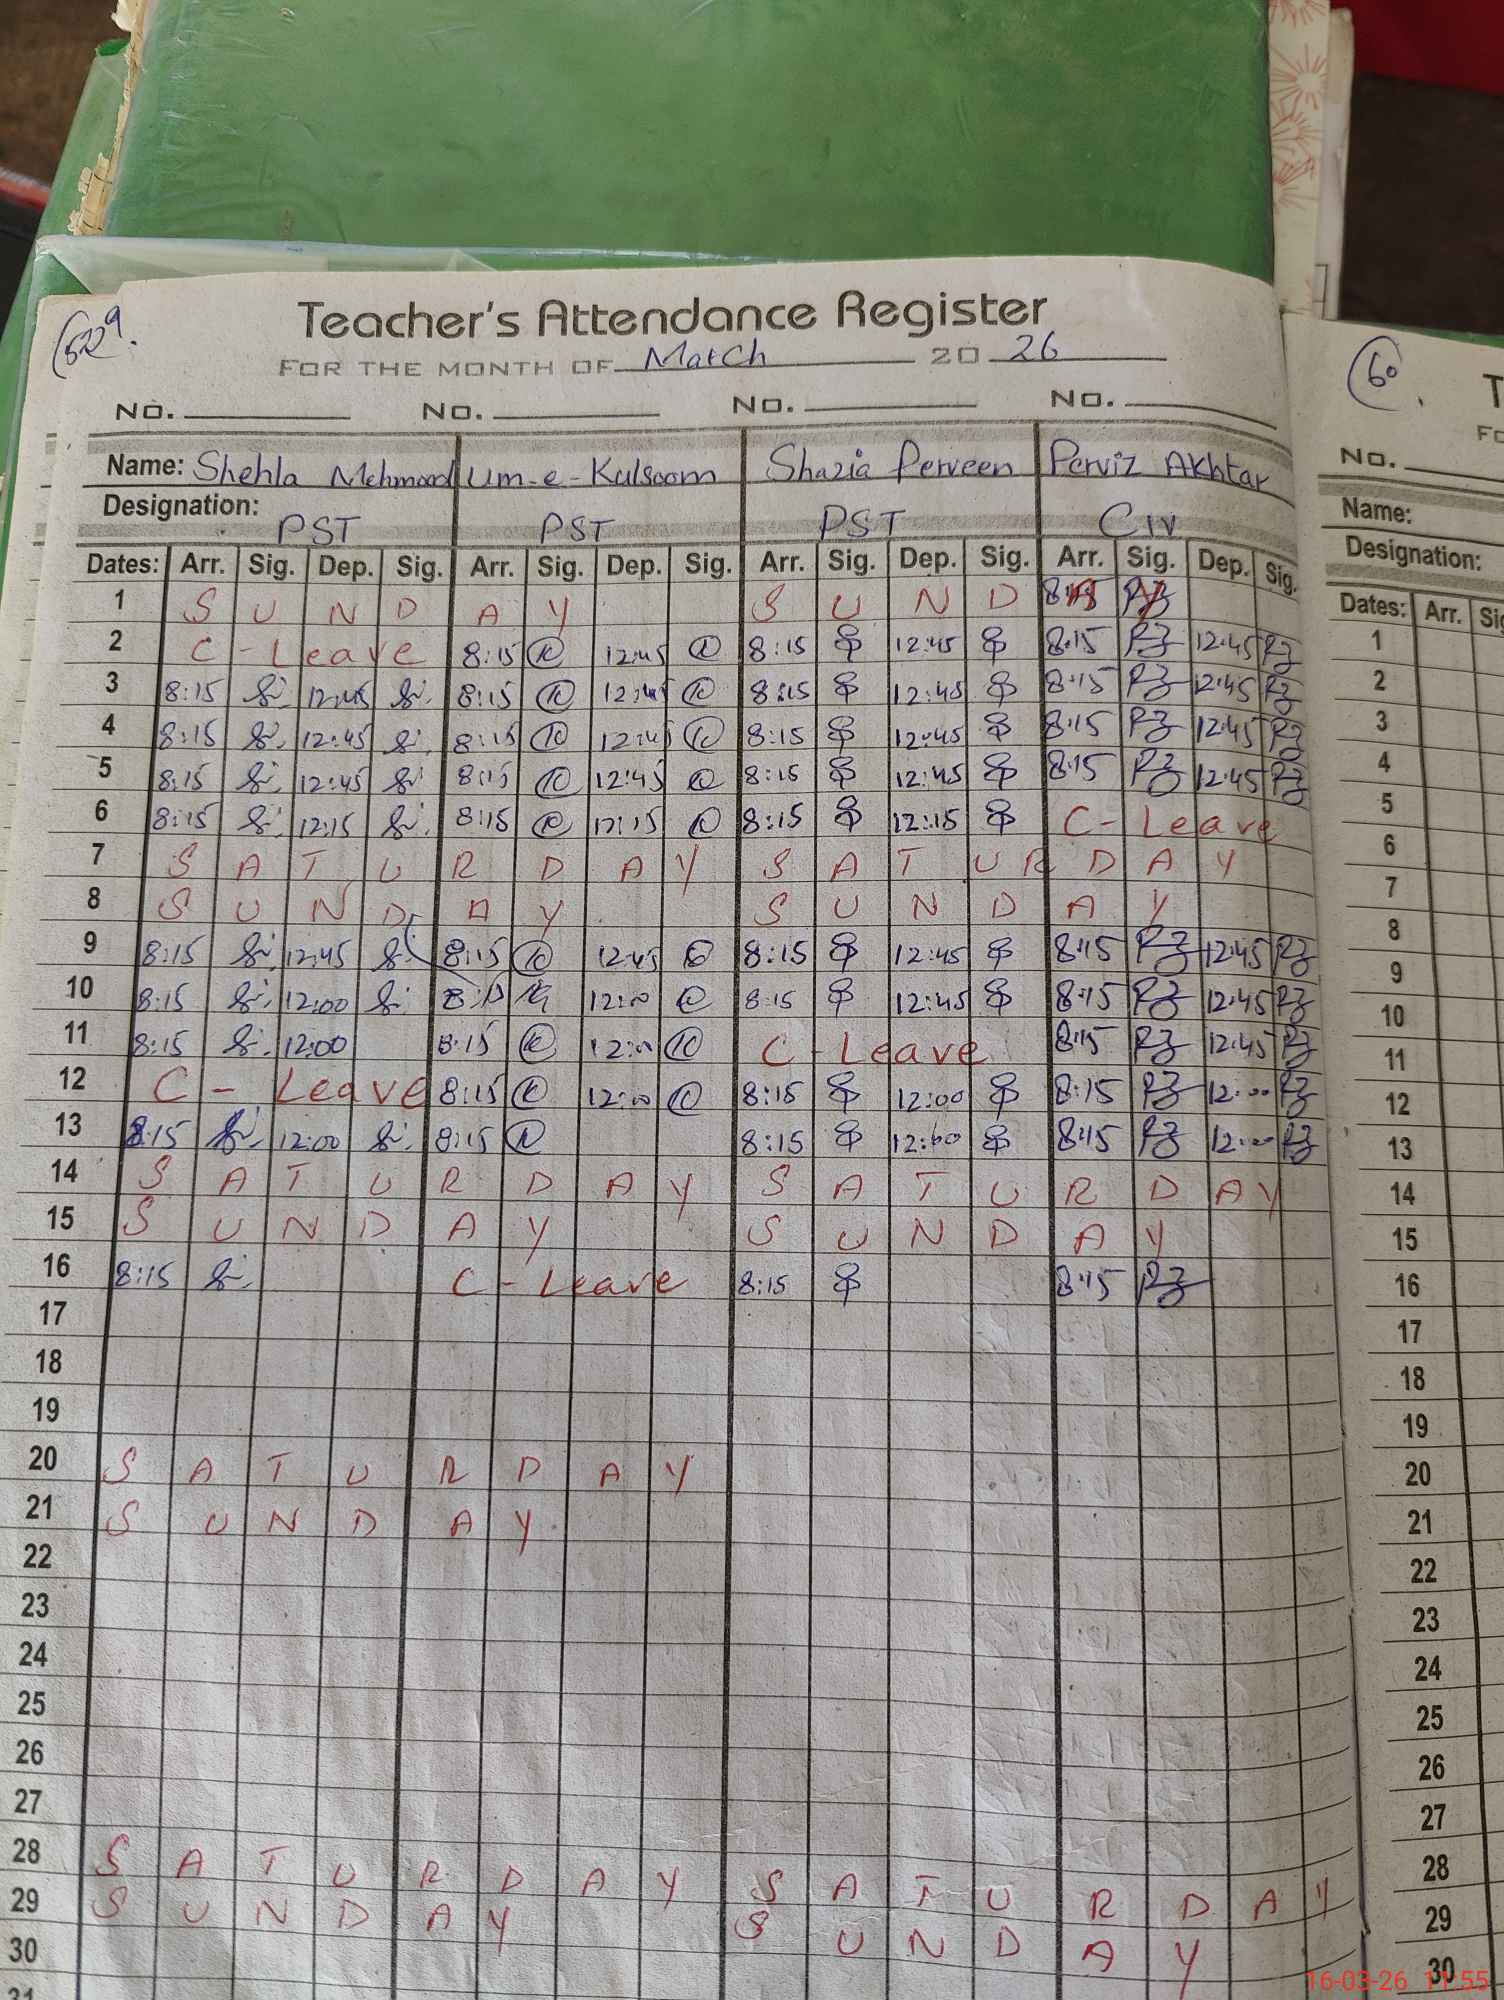 Teacher's Attendance Register
FOR THE MONTH OF March 20 26
NO. NO. NO. NO.
Name: Shehla Mehmood Um-e-Kulsoom Shazia Perveen Perviz Akhtar
Designation: PST PST PST CIV
Dates: Arr. Sig. Dep. Sig. Arr. Sig. Dep. Sig. Arr. Sig. Dep. Sig. Arr. Sig. Dep. Sig.
1 SUNDAY SUNDAY
2 C-Leave 8:15 12:45 8:15 12:45 8:15 12:45
3 8:15 12:45 8:15 12:45 8:15 12:45 8:15 12:45
4 8:15 12:45 8:15 12:45 8:15 12:45 8:15 12:45
5 8:15 12:45 8:15 12:45 8:15 12:45 8:15 12:45
6 8:15 12:15 8:15 12:15 8:15 12:15 C-Leave
7 SATURDAY SATURDAY
8 SUNDAY SUNDAY
9 8:15 12:45 8:15 12:45 8:15 12:45 8:15 12:45
10 8:15 12:00 12:00 8:15 12:45 8:15 12:45
11 8:15 12:00 8:15 12:00 C-Leave 8:15 12:45
12 C-Leave 8:15 12:00 8:15 12:00 8:15 12:00
13 8:15 12:00 8:15 8:15 12:00 8:15 12:00
14 SATURDAY SATURDAY
15 SUNDAY SUNDAY
16 8:15 C-Leave 8:15 8:15
17
18
19
20 SATURDAY
21 SUNDAY
22
23
24
25
26
27
28 SATURDAY SATURDAY
29 SUNDAY SUNDAY
30
31
60
NO.
Name:
Designation:
Dates: Arr.
1
2
3
4
5
6
7
8
9
10
11
12
13
14
15
16
17
18
19
20
21
22
23
24
25
26
27
28
29
30
16-03-26 11:55